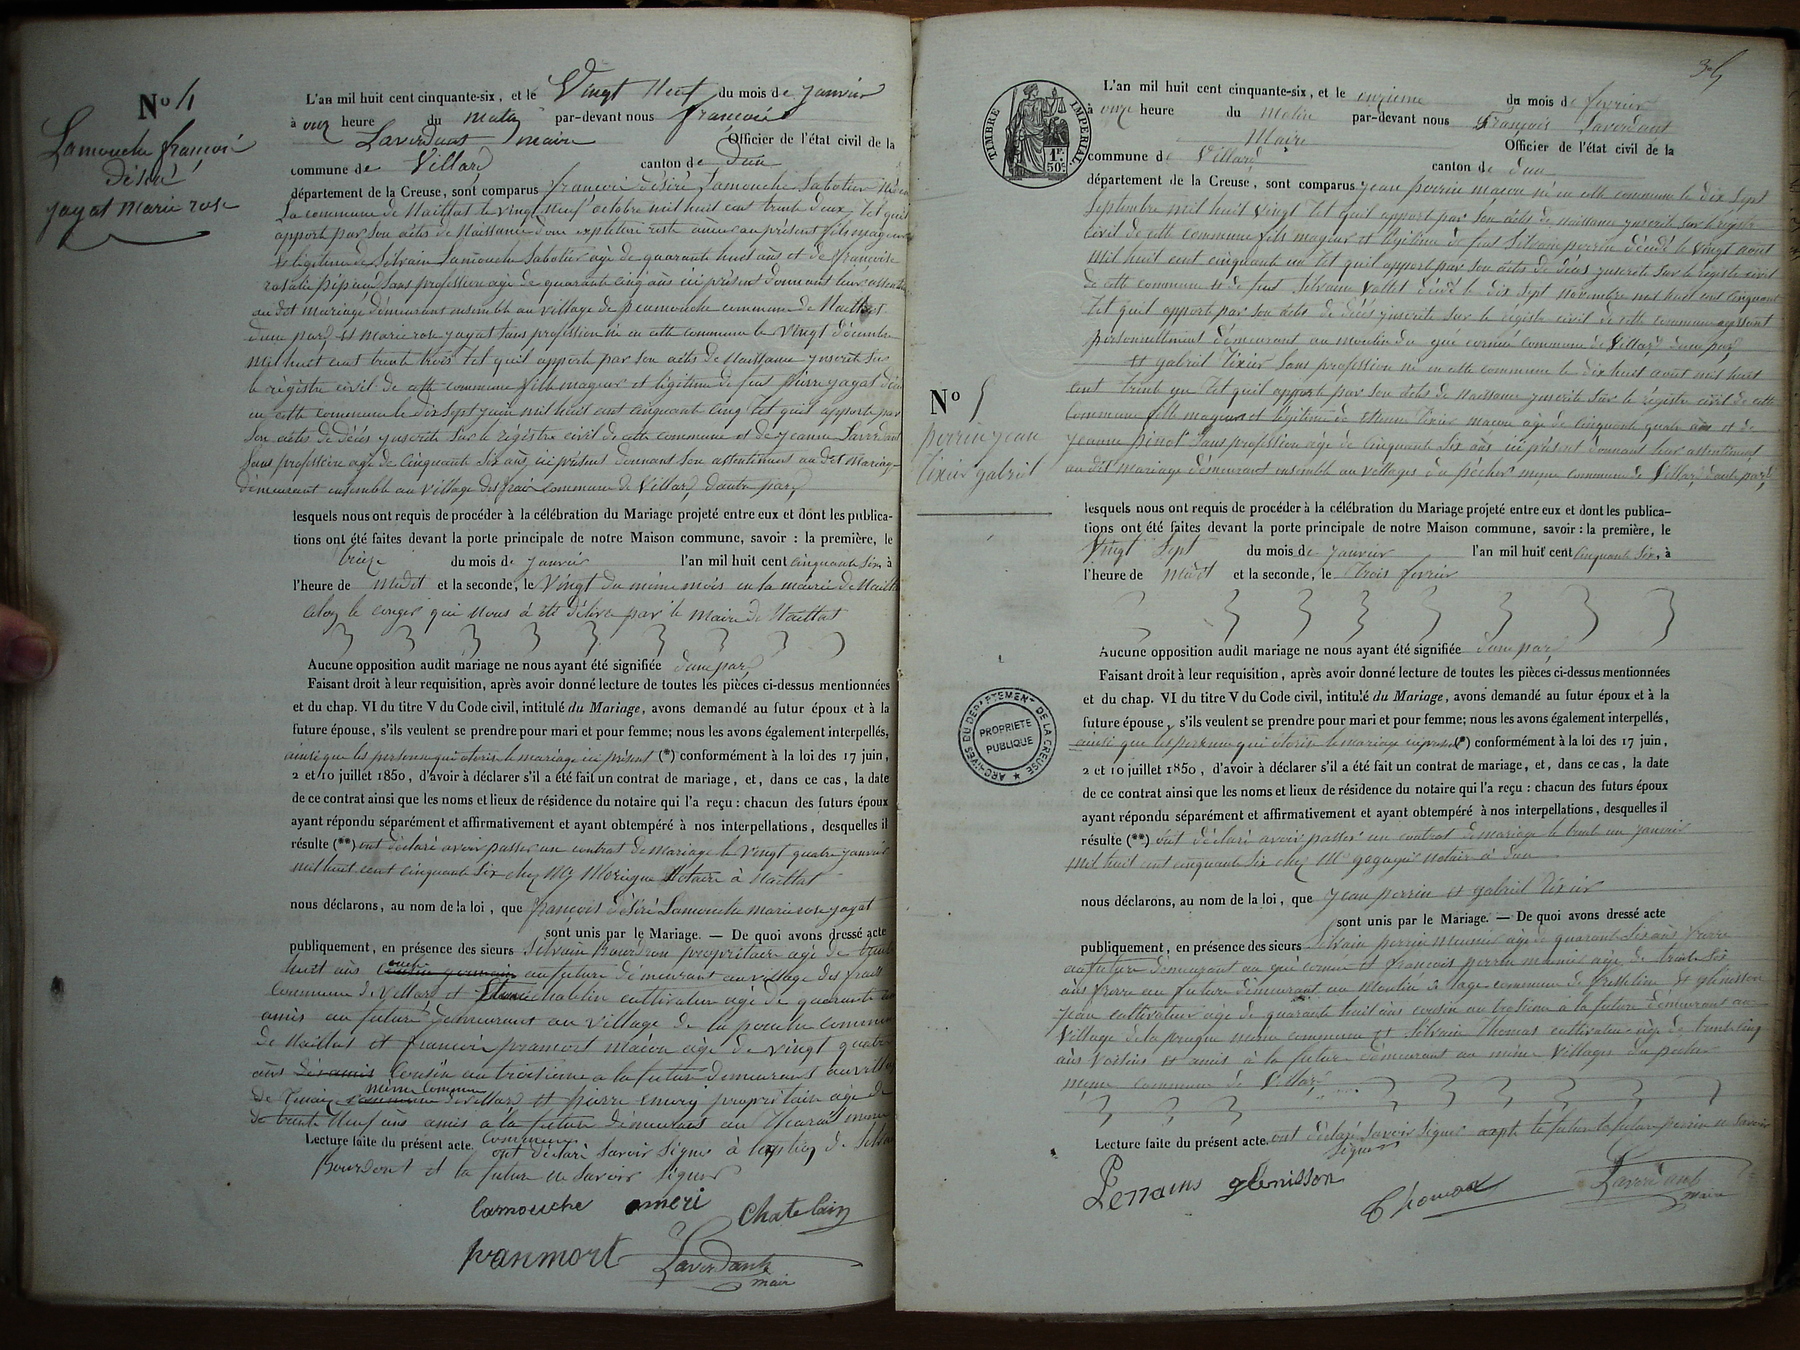 No 4
Lamouche françois
désiré
jayat Marie rose
L'an mil huit cent cinquante-six, et le Vingt Neuf du mois de janvier
à onze heure du matin par-devant nous françois
Laverdant maire Officier de l'état civil de la
commune de Villard canton de Dun
département de la Creuse, sont comparus françois désiré Lamouche Sabotier Né à
La commune de Naillat le vingt Neuf octobre mil huit cent trente deux, tel quil
apport par son actes de Naissance dont au présent fils mageur
et légitime de Silvain Lamouche Sabotier agé de quarante huit ans et de françoise
rosalie sans profession agé de quarante cinq ans ici présent donnant leur
au dit mariage démeurant ensemble au village de commune de Naillat
dune part, et Marie rose jayat sans profession né en cette commune le Vingt décembre
mil huit cent trente trois tel quil apporte par son actes de Naissance ynscrite sur
le régistre civil de cette commune fille mageur et légitime de feus pierre jayat
en cette commune le dix sept juin mil huit cent cinquante cinq tel quil apporte par
son actes de décés ynscrite sur le régistre civil de cette commune et de jeanne Laverdant
sans profession agé de cinquante six ans, ici présent donnant son assentiment au dit Mariage
démeurant ensemble au village des frais commune de Villard, dautre part,
lesquels nous ont requis de procéder à la célébration du Mariage projeté entre eux et dont les publica-
tions ont été faites devant la porte principale de notre Maison commune, savoir : la première, le
treize du mois de janvier l'an mil huit cent cinquante six, à
l'heure de midit et la seconde, le Vingt du même mois en la mairie de Naillat
le conger qui nous à été délivré par le Maire de Naillat
Aucune opposition audit mariage ne nous ayant été signifiée dune part
Faisant droit à leur requisition, après avoir donné lecture de toutes les pièces ci-dessus mentionnées
et du chap. VI du titre V du Code civil, intitulé du Mariage, avons demandé au futur époux et à la
future épouse, s'ils veulent se prendre pour mari et pour femme; nous les avons également interpellés,
ainsi que les personne qui otorise le mariage ici présent (*) conformément à la loi des 17 juin,
2 et 10 juillet 1850, d'avoir à déclarer s'il a été fait un contrat de mariage, et, dans ce cas, la date
de ce contrat ainsi que les noms et lieux de résidence du notaire qui l'a reçu : chacun des futurs époux
ayant répondu séparément et affirmativement et ayant obtempéré à nos interpellations, desquelles il
résulte (**) ont déclaré avoir passer un contrat de mariage le Vingt quatre janvier
mil huit cent cinquante six chez Me Notaire à Naillat
nous déclarons, au nom de la loi, que françois désiré Lamouche marie rose jayat
sont unis par le Mariage. — De quoi avons dressé acte
publiquement, en présence des sieurs Silvain Bourdon propriétaire agé de trente
huit ans oncle au future démeurant au village des frais
commune de Villard et chatelin cultivateur agé de quarante
amis au future démeurant au village de la commune
de Naillat et françois pranmort macon agé de vingt quatre
ans cousin au troisieme a la future démeurant au village
de même commune de Villard et pierre emery propriétaire agé de
de trente Neuf ans amis à la future démeurant au même
Lecture faite du présent acte. commune ont déclaré savoir signé à de
Bourdont et la future ne savoir signer
Lamouche ameri chatelain
pranmort Laverdant
mair
35
TIMBRE IMPERIAL
1F.
50c
L'an mil huit cent cinquante-six, et le onzieme du mois de fevrier
à onze heure du Matin par-devant nous François Laverdant
Maire Officier de l'état civil de la
commune de Villard canton de dun
département de la Creuse, sont comparus jean perrin macon né en cette commune le dix sept
Septembre mil huit vingt tel quil apport par son actes de naissance ynscrit sur le régistre
civil de cette commune fils mageur et légitime de feus Silvain perrin décédé le vingt aout
mil huit cent cinquante un tel quil apport par son actes de décés ynscrite sur le régistre civil
de cette commune et de feus Silvaine Vallet décédé le dix sept Novembre mil huit cent cinquant
tel quil apport par son actes de décés ynscrite sur le régistre civil de cette commune agissant
personnellement démeurant au moulin du gué cornu commune de Villard, dune part,
et gabriel tixier sans profession né en cette commune le dix huit aout mil huit
cent trente un tel quil apporte par son actes de Naissance ynscrite sur le régistre civil de cette
commune fille mageur et légitime de etienne tixier macon agé de cinquante quatre ans et de
jeanne pinot sans profession agé de cinquante six ans ici présent donnant leur assentiment
au dit mariage démeurant ensemble au villages du pécher même commune de Villard, dautre part,
No 5
perrin jean
tixier gabriel
lesquels nous ont requis de procéder à la célébration du Mariage projeté entre eux et dont les publica-
tions ont été faites devant la porte principale de notre Maison commune, savoir : la première, le
Vingt Sept du mois de janvier l'an mil huit cent cinquante six, à
l'heure de midit et la seconde, le trois fevrier
Aucune opposition audit mariage ne nous ayant été signifiée dune part,
Faisant droit à leur requisition, après avoir donné lecture de toutes les pièces ci-dessus mentionnées
et du chap. VI du titre V du Code civil, intitulé du Mariage, avons demandé au futur époux et à la
future épouse, s'ils veulent se prendre pour mari et pour femme; nous les avons également interpellés,
ainsi que les personne qui otorise le mariage ici présent (*) conformément à la loi des 17 juin,
2 et 10 juillet 1850, d'avoir à déclarer s'il a été fait un contrat de mariage, et, dans ce cas, la date
de ce contrat ainsi que les noms et lieux de résidence du notaire qui l'a reçu : chacun des futurs époux
ayant répondu séparément et affirmativement et ayant obtempéré à nos interpellations, desquelles il
résulte (**) ont déclaré avoir passer un contrat de mariage le trente un janvier
mil huit cent cinquante six chez Me notair à dun
nous déclarons, au nom de la loi, que jean perrin et gabriel tixier
sont unis par le Mariage. — De quoi avons dressé acte
publiquement, en présence des sieurs Silvain perrin meunier agé de quarante six ans frere
au future démeurant au gué cornu et françois perrin agé de trente six
ans frere au future démeurant au Moulin de lage commune de fresseline et glenisson
jean cultivateur agé de quarante huit ans cousin au troisieme à la future démeurant au
Village de la prugne même commune et Silvain thomas cultivateur agé de trente cinq
ans Voisins et amis à la future démeurant au même Villages du pecher
même commune de Villard
Lecture faite du présent acte. ont déclaré savoir signer le future la future perrin ne savoir
signer
Perrains glenisson
Thomas Laverdant
mair
ARCHIVES DU DEPARTEMENT DE LA CREUSE
PROPRIETE
PUBLIQUE